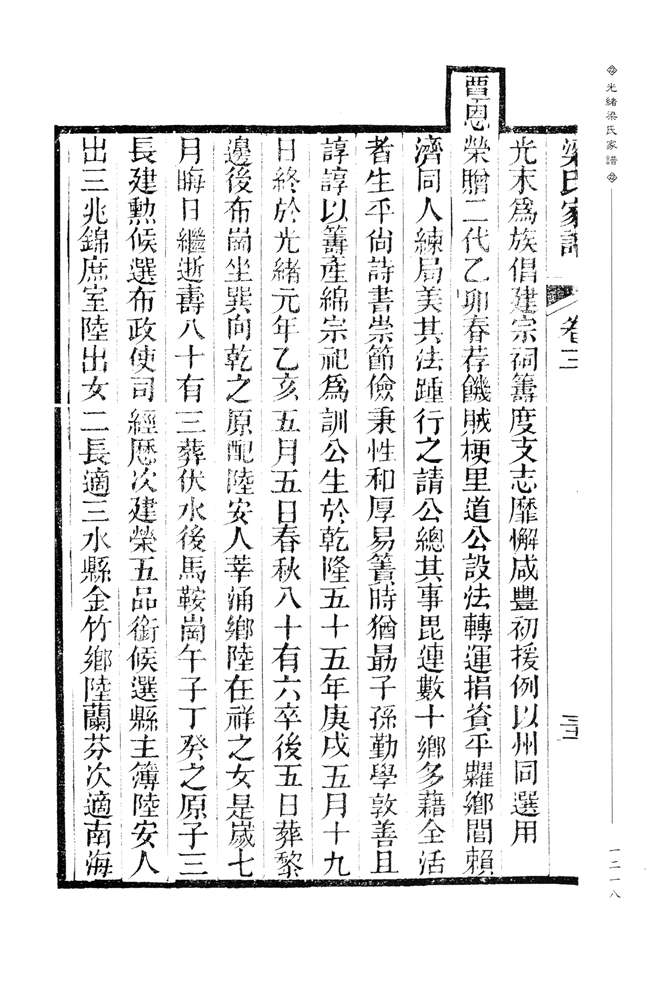 光緒梁氏家譜
一二一八
梁氏家譜 卷三 三五
光末爲族倡建宗祠籌度支志靡懈咸豐初援例以州同選用
覃恩榮贈二代乙卯春荐饑賊梗里道公設法轉運捐資平糶鄉閭賴
濟同人練局美其法踵行之請公總其事毘連數十鄉多藉全活
者生平尙詩書崇節儉秉性和厚易簀時猶勗子孫勤學敦善且
諄諄以籌產綿宗祀爲訓公生於乾隆五十五年庚戌五月十九
日終於光緒元年乙亥五月五日春秋八十有六卒後五日葬黎
邊後布崗坐巽向乾之原配陸安人莘涌鄉陸在祥之女是歲七
月晦日繼逝壽八十有三葬伏水後馬鞍崗午子丁癸之原子三
長建勲候選布政使司經歷次建榮五品銜候選縣主簿陸安人
出三兆錦庶室陸出女二長適三水縣金竹鄉陸蘭芬次適南海